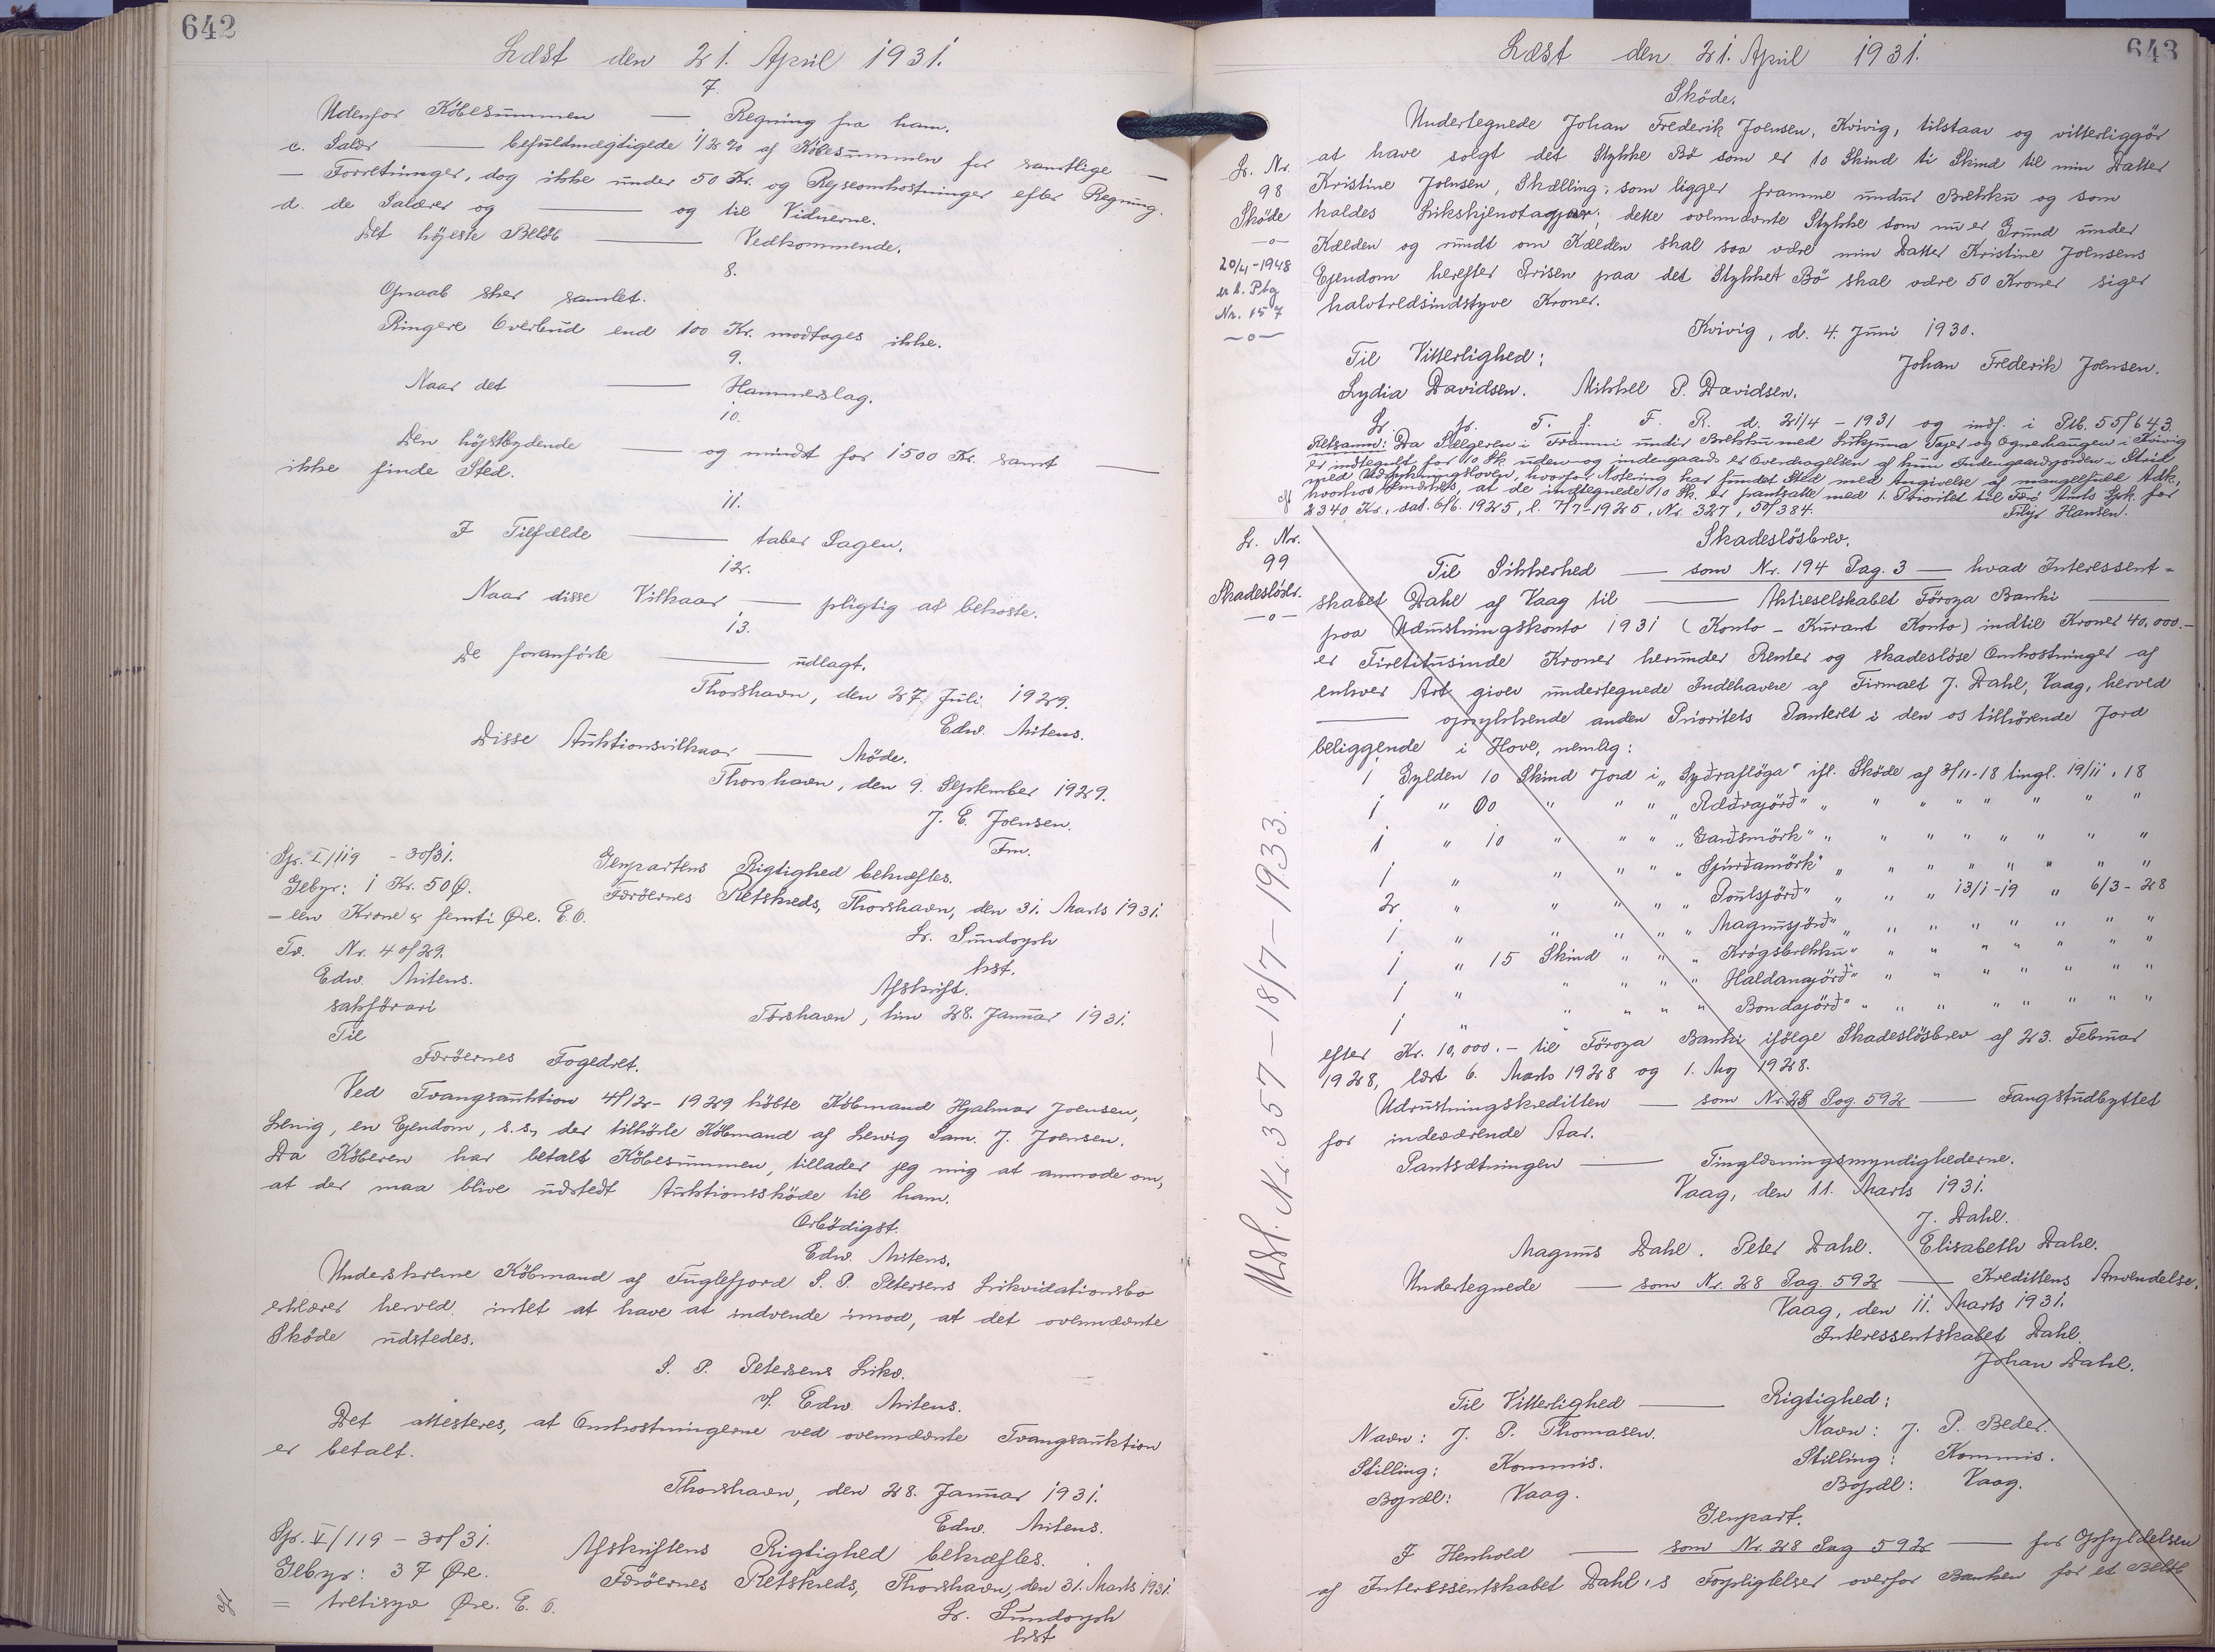 642
Læst den 21. April 1931.
7.
Udenfor Köbesummen — Regning fra ham.
c. Salær — befuldmægtigede 1/2 % af Köbesummen for samtlige —
— Forretninger, dog ikke under 50 Kr. og Rejseomkostninger efter Regning.
d. de Salærer og — og til Vidnerne.
Det höjeste Belöb — Vedkommende.
8.
Opraab sker samlet.
Ringere Overbud end 100 Kr. modtages ikke.
9.
Naar det — Hammerslag.
10.
Den höjstbydende — og mindst for 1500 Kr. samt —
ikke finde Sted.
11.
I Tilfælde — taber Sagen.
12.
Naar disse Vilkaar — pligtig at bekoste.
13.
De foranförte — udlagt.
Thorshavn, den 27. Juli 1929.
Edw. Mitens.
Disse Auktionsvilkaar — Möde.
Thorshavn, den 9. September 1929.
J. E. Joensen.
Fm.
Sp. I/119 - 30/31.
Gebyr: 1 Kr. 50 Ø.
- een Krone & femti Øre. E. O.
Genpartens Rigtighed bekræftes.
Færöernes Retskreds, Thorshavn, den 31. Marts 1931.
Sr. Sundorph
kst.
Tv. Nr. 40/29.
Edw. Mitens.
sakförari
Til
Afskrift.
Tórshavn, tann 28. Januar 1931.
Færöernes Fogedret.
Ved Tvangsauktion 4/12- 1929 köbte Köbmand Hjalmar Joensen,
Lervig, en Ejendom, s. s., der tilhörte Köbmand af Lervig Sam. J. Joensen.
Da Köberen har betalt Köbesummen, tillader jeg mig at anmode om,
at der maa blive udstedt Auktionssköde til ham.
Ærbödigst.
Edw. Mitens.
Underskrevne Köbmand af Fuglefjord S. P. Petersens Likvidationsbo
erklærer herved intet at have at indvende imod, at det ovennævnte
Sköde udstedes.
S. P. Petersens Likv.
v/ Edw. Mitens.
Det attesteres, at Omkostningerne ved ovennævnte Tvangsauktion
er betalt.
Thorshavn, den 28. Januar 1931.
Edw. Mitens.
Sp. V/119 - 30/31.
Gebyr: 37 Øre.
= tretisyv Øre. E. O.
Afskriftens Rigtighed bekræftes.
Færöernes Retskreds, Thorshavn, den 31. Marts 1931.
Sr. Sundorph
kst
643
Læst den 21. April 1931.
Sköde.
L. Nr.
98
Sköde
—o—
20/4-1948
Nr. 157
—o—
Undertegnede Johan Frederik Joensen, Kvivig, tilstaar og vitterliggör
at have solgt det Stykke Bö som er 10 Skind ti Skind til min Datter
Kristine Joensen, Skælling, som ligger framme undur Brekku og som
kaldes Likskjenotagjar; dette ovennævnte Stykke som nu er Grund under
Kælden og rundt om Kælden skal saa være min Datter Kristine Joensens
Ejendom herefter Prisen paa det Stykket Bö skal være 50 Kroner siger
halvtredsindstyve Kroner.
Kvivig, d. 4. Juni 1930.
Til Vitterlighed: Johan Frederik Joensen.
Lydia Davidsen. Mikkel P. Davidsen.
L. p. T. f. F. R. d. 21/4 - 1931 og indf. i Ptb. 55/643.
Retsanm: Da Sælgeren i Frammi undir Brekku med Likjuna Tejer og Ognerhaugen i Kvivig
er indtegnet for 10 Sk. uden- og indengaards er Overdragelsen af kun Indengaardsjorden i Strid
med Udstykningsloven, hvorfor Notering har fundet Sted med Angivelse af mangelfuld Adk.,
hvorhos bemærkes, at de indtegnede 10 Sk. er pantsatte med 1. Prioritet til Færö Amts Spk. for
2340 Kr., dat. 6/6. 1925, l. 7/7-1925, Nr. 327, 50/384. Filip Hansen.
L. Nr.
99
Skadeslösbr.
—o—
Skadeslösbrev.
Til Sikkerhed — som Nr. 194 Pag. 3 — hvad Interessent-
skabet Dahl af Vaag til — Aktieselskabet Föroya Banki —
paa Udrustningskonto 1931 (Konto - Kurant Konto) indtil Kroner 40,000.-
er Firetitusinde Kroner herunder Renter og skadeslöse Omkostninger af
enhver Art giver undertegnede Indehavere af Firmaet J. Dahl, Vaag, herved
— oprykkende anden Prioritets Panteret i den os tilhörende Jord
beliggende i Hove, nemlig:
1 Gylden 10 Skind Jord i „Syðraflöga" ifl. Sköde af 3/11-18 tingl. 19/11.18
1 " 00 " " " „Ræðrajörð" " " " " " " " "
1 " 10 " " " „Garðsmörk" " " " " " " " "
1 " " " " „Spurðamörk" " " " " " " " "
2 " " " " „Poulsjörð" " " " 13/1-19 " 6/3-28
1 " " " " „Magnusjörð" " " " " " " "
1 " 15 Skind " " „Krógsbrekku" " " " " " " "
1 " " " " „Haldanajörð" " " " " " " "
1 " " " " „Bondajörð" " " " " " " " "
efter Kr. 10,000.- til Föroya Banki ifölge Skadeslösbrev af 23. Februar
1928, læst 6. Marts 1928 og 1. Maj 1928.
Udrustningskreditten — som Nr. 28 Pag. 592 — Fangstudbyttet
for indeværende Aar.
Pantsætningen — Tinglæsningsmyndighederne.
Vaag, den 11. Marts 1931.
J. Dahl.
Magnus Dahl. Peter Dahl. Elisabeth Dahl.
Undertegnede — som Nr. 28 Pag. 592 — Kredittens Anvendelse.
Vaag, den 11. Marts 1931.
Interessentskabet Dahl.
Johan Dahl.
Til Vitterlighed — Rigtighed:
Navn: J. P. Thomasen. Navn: J. P. Beder.
Stilling: Kommis. Stilling: Kommis.
Bopæl: Vaag. Bopæl: Vaag.
Genpart.
I Henhold — som Nr. 28 Pag 592 — for Opfyldelsen
af Interessentskabet Dahl's Forpligtelser overfor Banken for et Belöb
Udsl. Nr. 357 - 18/7 - 1933.